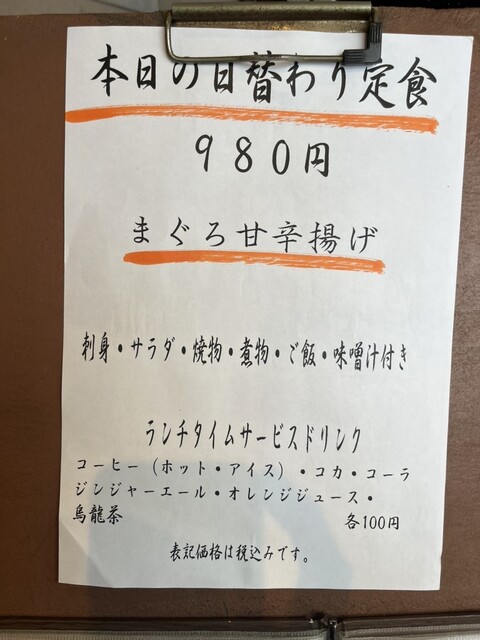 本日の日替わり定食
980円
まぐろ甘辛揚げ
刺身・サラダ・焼物・煮物・ご飯・味噌汁付き
ランチタイムサービスドリンク
コーヒー（ホット・アイス）・コカ・コーラ
ジンジャーエール・オレンジジュース・
烏龍茶 各100円
表記価格は税込みです。